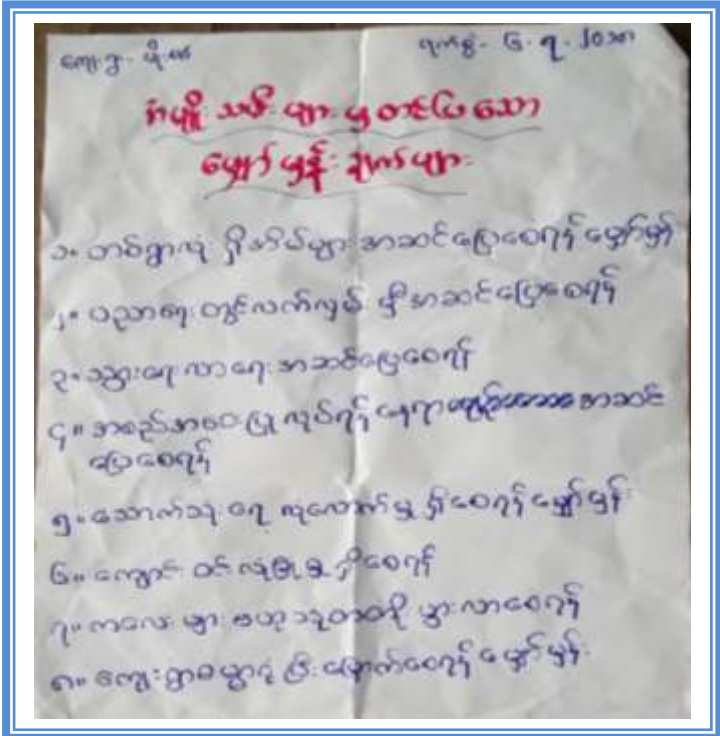 ကျေးရွာ - ပိုးစမ်
ရက်စွဲ - ၆ . ၇ . ၂၀၁၈
အမျိုးသမီးများမှတင်ပြသော
မျှော်မှန်းချက်များ
၁။ တစ်ရွာလုံးရှိအိမ်များအဆင်ပြေစေရန်မျှော်မှန်း
၂။ ပညာရေးတွင်လက်လှမ်းမှီအဆင်ပြေစေရန်
၃။ သွားရေးလာရေးအဆင်ပြေစေရန်
၄။ အစည်းအဝေးပြုလုပ်ရန်နေရာ အဆင်
ပြေစေရန်
၅။ သောက်သုံးရေလုံလောက်မှုရှိစေရန်မျှော်မှန်း
၆။ ကျောင်းဝင်းလုံခြုံမှုရှိစေရန်
၇။ ကလေးများဗဟုသုတတိုးပွားလာစေရန်
၈။ ကျေးရွာဓမ္မာရုံပြီးမြောက်စေရန်မျှော်မှန်း